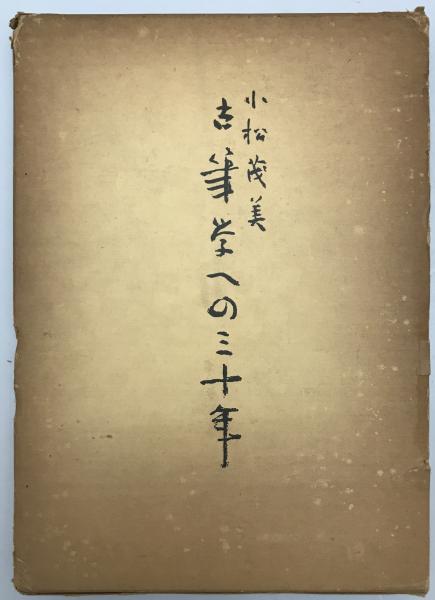 小松茂美
古筆学への三十年